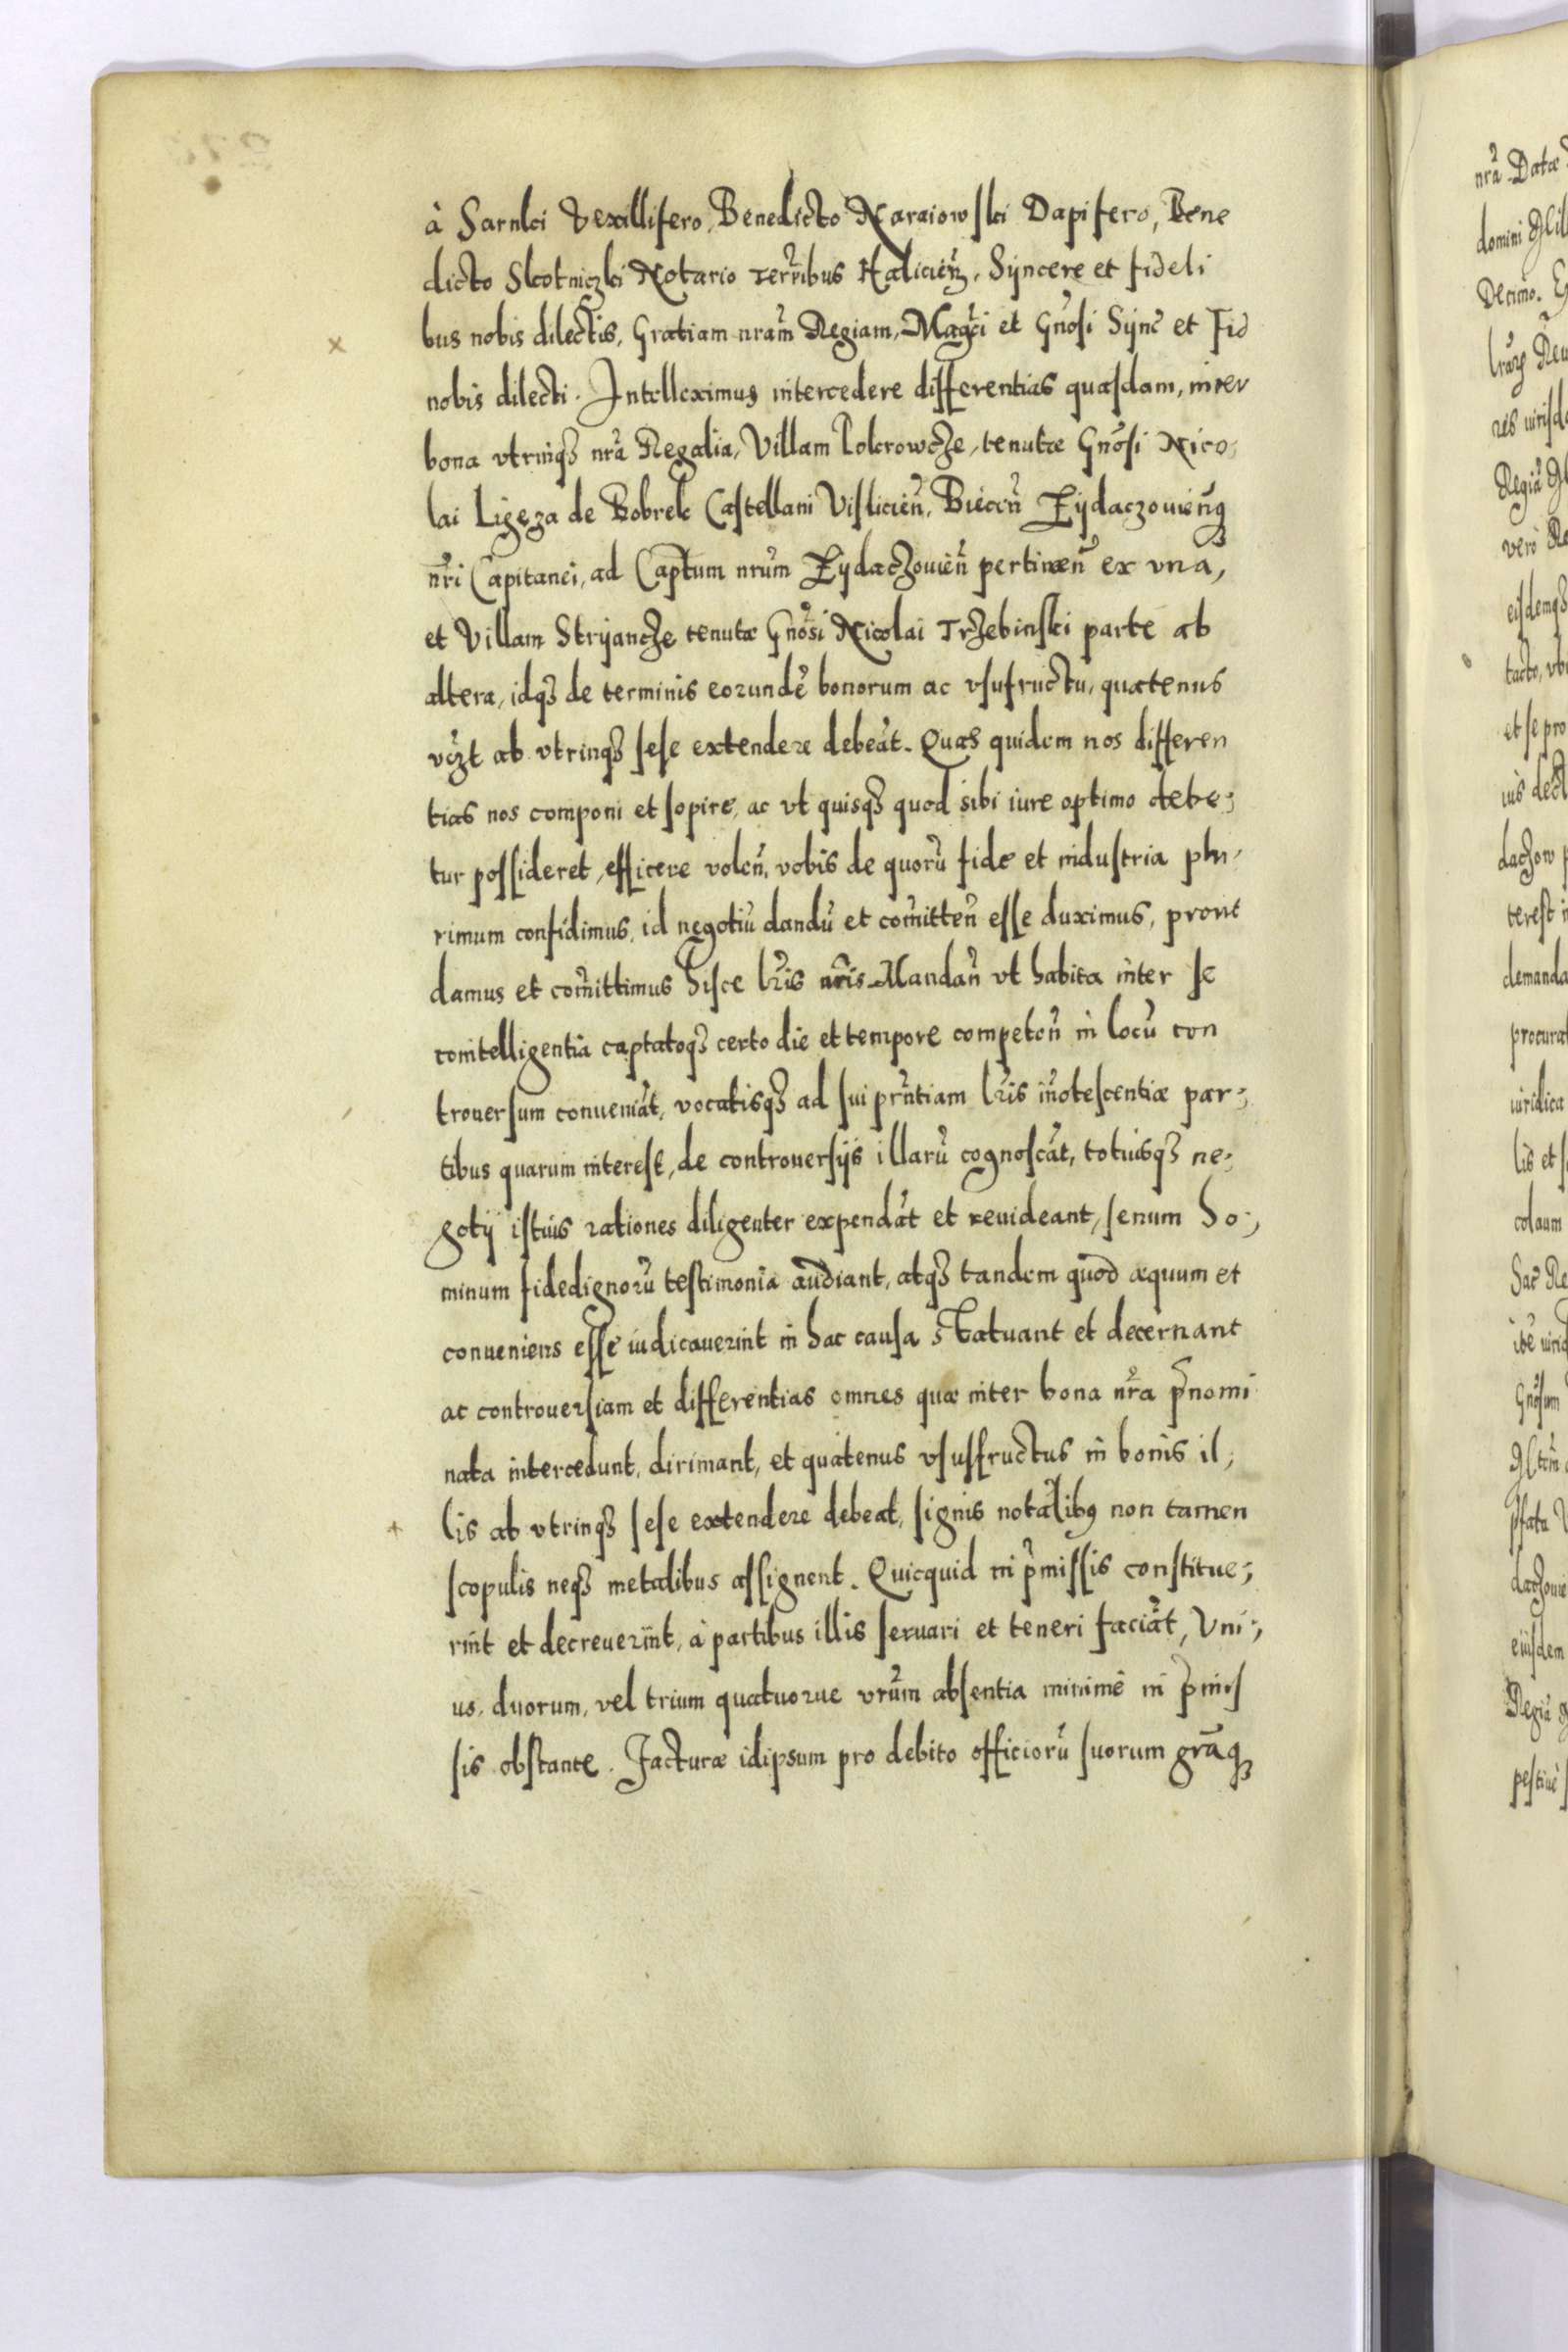 à Sarnki Vexillifero, Benedicto Naraiowski Dapifero, Bene
dicto Skotniczki Notario Terr̃ribus Halicień, Syncere et fideli
bus nobis dilectis, Gratiam nrãm Regiam, Magc̃i et Gnõsi Sync̃ et Fid
nobis dilecti. Intelleximus intercedere differentias quasdam, inter
bona vtrinqȝ nrã Regalia, Villam Pokrowcze, tenutæ Gnõsi Nico;
lai Ligęza de Bobrek Castellani Visliciẽn, Biecẽn Zydaczouiẽnq
nr̃i Capitanei, ad Captum nrũm Zydaczouiẽn pertineñ ex vna,
et Villam Stryancze tenutæ Gnõsi Nicolai Trzebinski parte ab
altera, idqȝ de terminis eorundẽ bonorum ac vsufructu, quatenus
vcz̃t ab vtrinqȝ sese extendere debeãt. Quas quidem nos differen
tias nos componi et sopire, ac vt quisqȝ quod sibi iure optimo debe;
tur possideret, efficere voleñ, vobis de quorũ fide et industria plu,
rimum confidimus, id negotiũ dandũ et com̃itteñ esse duximus, prout
damus et com̃ittimus hisce lr̃is nr̃is Mandañ vt habita inter se
conitelligentia captatoqȝ certo die et tempore competeñ in locũ con
trouersum conueniãt, vocatisqȝ ad sui prñtiam lr̃is iñotescentiæ par;
tibus quarum interest, de controuersijs illarũ cognoscãt, totiusqȝ ne;
gotij istius rationes diligenter expendãt et reuideant, senum ho;
minum fidedignorũ testimonia audiant, atqȝ tandem quod æquum et
conueniens esse iudicauerint in hac causa statuant et decernant
ac controuersiam et differentias omnes quæ inter bona nr̃a p̃nomi
nata intercedunt, dirimant, et quatenus vsusfructus in bonis il;
lis ab vtrinqȝ sese extendere debeat, signis notalibꝯ non tamen
scopulis neqȝ metalibus assignent. Quicquid in p̃missis constitue;
rint et decreuerint, à partibus illis seruari et teneri faciãt, Vni;
us, duorum, vel trium quatuorue vrũm absentia minimè in p̃mis
sis obstante. Facturæ idipsum pro debito officiorũ suorum grãq